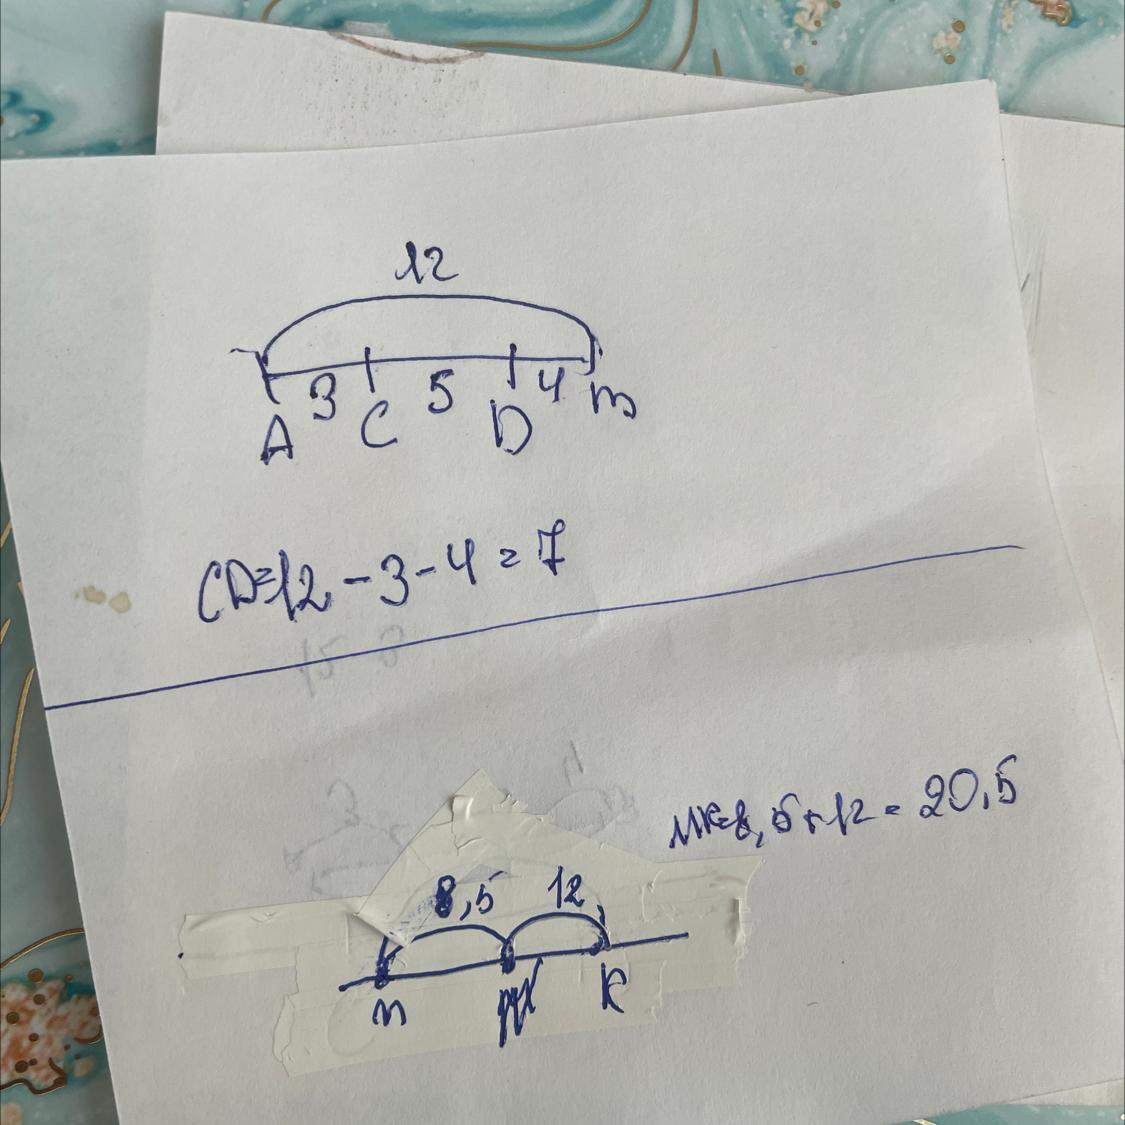 12
3 5 4
A C D m
CD=12-3-4=7
MK=8,5+12=20,5
8,5 12
m K